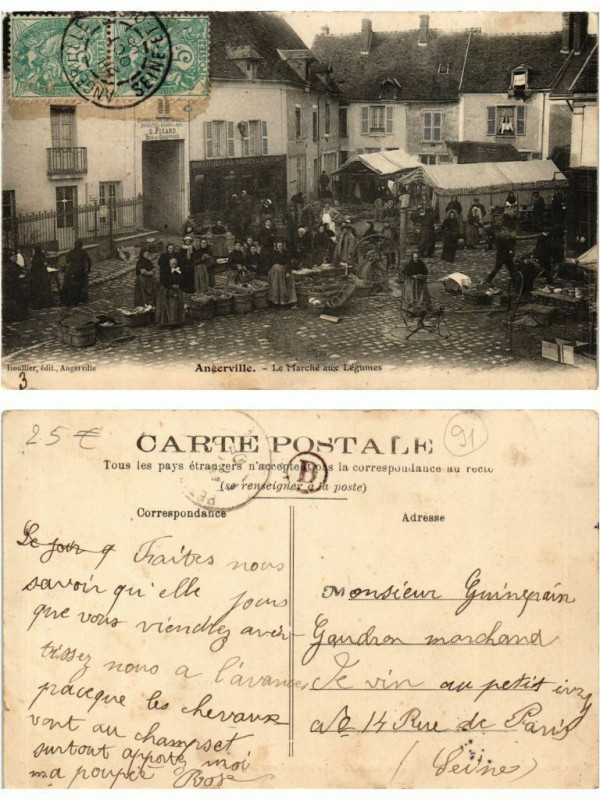 G. PICARD
ANGERVILLE
SEINE-ET
Boullier, édit., Angerville
Angerville. - Le Marché aux Légumes
3
25 €
91
CARTE POSTALE
Tous les pays étrangers n'acceptent pas la correspondance au recto
(se renseigner à la poste)
B
Correspondance
Adresse
Le jour q Fraites nous
savoir qu'elle jours
que vous viendrez aver-
tissez nous a l'avances
praceque les chevaux
vont au champs et
surtout apportez moi
ma poupée Rose
Monsieur Guinepain
Gaudron marchand
de vin au petit ivry
No 14 Rue de Paris
(Seine)